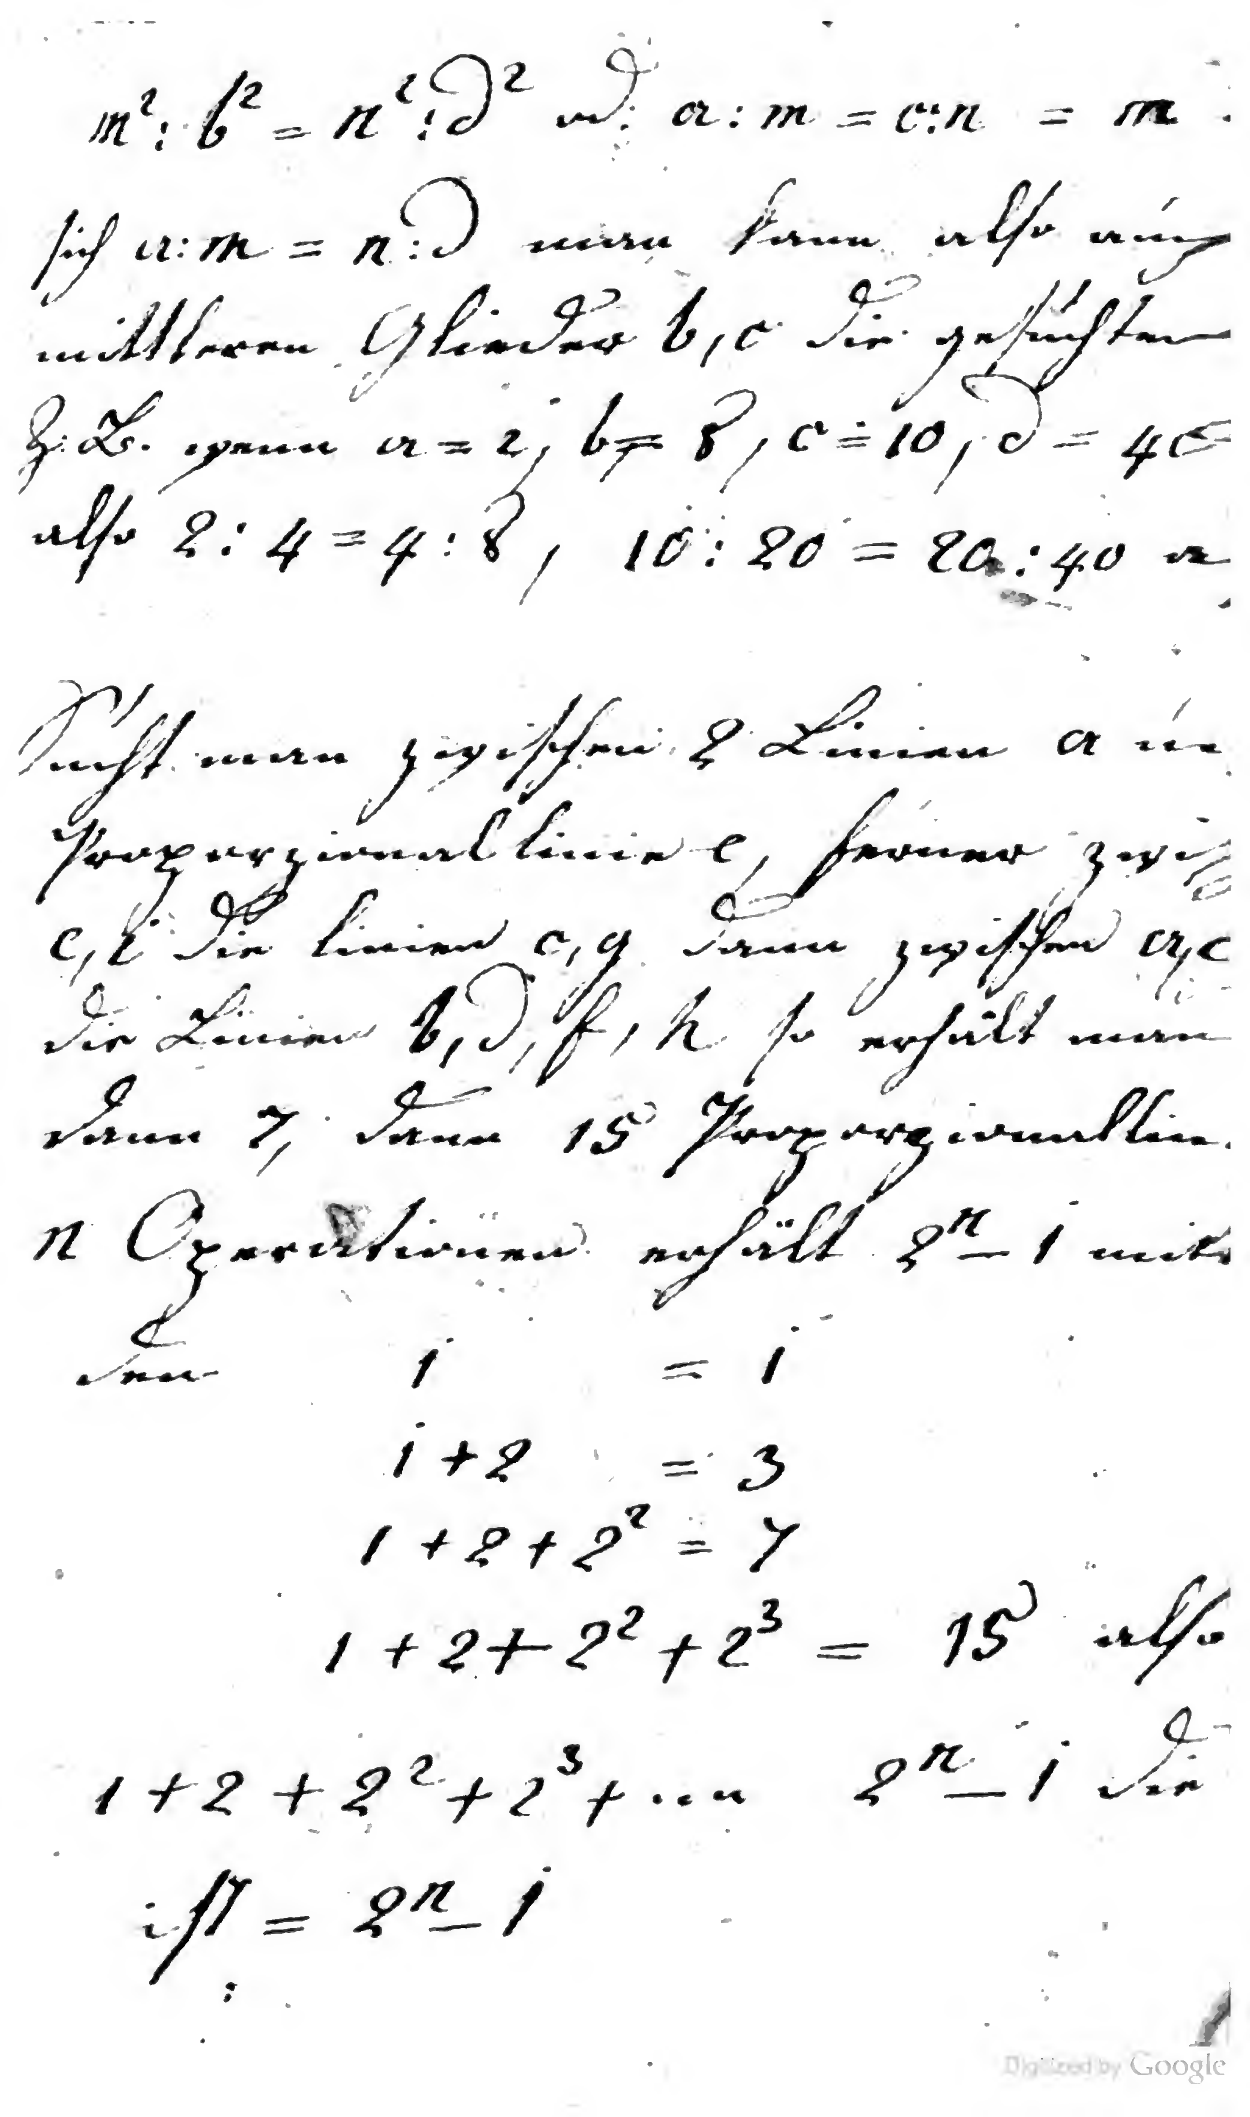 m²: b² = n²: d² od: a: m = c: n = m
sich a: m = n: d man kann also auch
mittleren Glieder b, c die gesuchten
Z. B. wenn a = 2, b = 8, c = 10, d = 40
also 2: 4 = 4: 8, 10: 20 = 20: 40
Sucht man zwischen 2 Linien a
Proporzionallinie e, ferner
e, i die linien c, g dann zwischen a, c
die Linien b, d, f, h so erhält man
dann 7, dann 15 Proporzionallin
n Operationen erhält 2ⁿ - 1
den 1 = 1
1 + 2 = 3
1 + 2 + 2² = 7
1 + 2 + 2² + 2³ = 15 also
1 + 2 + 2² + 2³ + ... 2ⁿ - 1 die
ist = 2ⁿ - 1
Digitized by Google